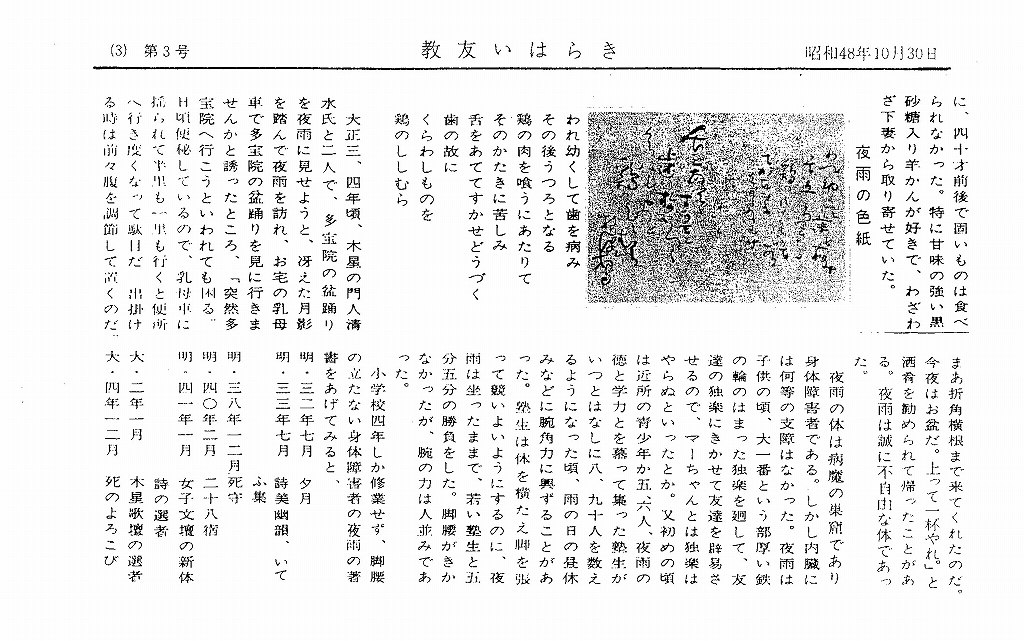 (3) 第3号
教友いはらき
昭和48年10月30日
に、四十才前後で固いものは食べ
られなかった。特に甘味の強い黒
砂糖入り羊かんが好きで、わざわ
ざ下妻から取り寄せていた。
夜雨の色紙
われ幼くして歯を病み
その後うつろとなる
鶏の肉を喰うにあたりて
そのかたきに苦しみ
舌をあててすかせどうづく
歯の故に
くらわしものを
鶏のししむら
大正三、四年頃、木星の門人清
水氏と二人で、多宝院の盆踊り
を夜雨に見せようと、冴えた月影
を踏んで夜雨を訪れ、お宅の乳母
車で多宝院の盆踊りを見に行きま
せんかと誘ったところ、「突然多
宝院へ行こうといわれても困る。
日頃便秘しているので、乳母車に
揺られて半里も一里も行くと便所
へ行き度くなって駄目だ 出掛け
る時は前々腹を調節して置くのだ。
まあ折角横根まで来てくれたのだ。
今夜はお盆だ。上って一杯やれ」と
酒肴を勧められて帰ったことがあ
る。夜雨は誠に不自由な体であっ
た。
夜雨の体は病魔の巣窟であり
身体障害者である。しかし内臓に
は何等の支障はなかった。夜雨は
子供の頃、大一番という部厚い鉄
の輪のはまった独楽を廻して、友
達の独楽にきかせて友達を辟易さ
せるので、マーちゃんとは独楽は
やらぬといったとか。又初めの頃
は近所の青少年か五、六人、夜雨の
徳と学力とを慕って集った塾生が
いつとはなしに八、九十人を数え
るようになった頃、雨の日の昼休
みなどに腕角力に興ずることがあ
った。塾生は体を横たえ脚を張
って競いよいようにするのに、夜
雨は坐ったままで、若い塾生と五
分五分の勝負をした。脚腰がきか
なかったが、腕の力は人並みであ
った。
小学校四年しか修業せず、脚腰
の立たない身体障害者の夜雨の著
書をあげてみると、
明・三二年七月 夕月
明・三三年七月 詩美幽韻、いて
ふ集
明・三八年一二月 死守
明・四〇年二月 二十八宿
明・四一年一月 女子文壇の新体
詩の選者
大・二年一月 木星歌壇の選者
大・四年一二月 死のよろこび